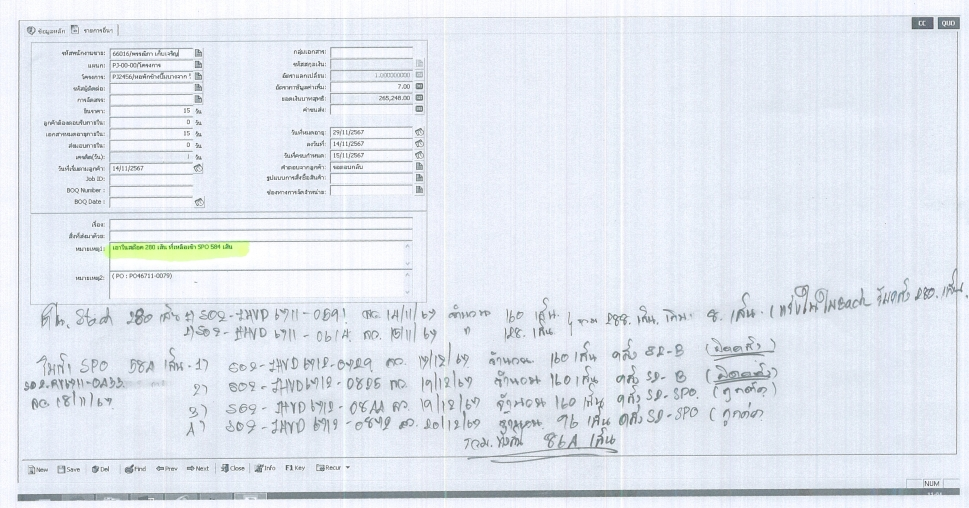 CC QUO
ข้อมูลหลัก รายการอื่นๆ
รหัสพนักงานขาย: 66016/พรรณิภา เก็บเจริญ
แผนก: PJ-00-00/โครงการ
โครงการ: PJ2456/หอพักช้างปั้นบางจาก
รหัสผู้ติดต่อ:
การจัดสรร:
ยืนราคา: 15 วัน
ลูกค้าต้องตอบรับภายใน: 0 วัน
เอกสารหมดอายุภายใน: 15 วัน
ส่งมอบภายใน: 0 วัน
เครดิต(วัน): วัน
วันที่เริ่มตามลูกค้า: 14/11/2567
Job ID:
BOQ Number :
BOQ Date :
กลุ่มเอกสาร:
รหัสสกุลเงิน:
อัตราแลกเปลี่ยน: 1.000000000
อัตราภาษีมูลค่าเพิ่ม: 7.00
ยอดเงินบาทสุทธิ: 265,248.00
ค่าขนส่ง:
วันที่หมดอายุ: 29/11/2567
ลงวันที่: 14/11/2567
วันที่ครบกำหนด: 15/11/2567
คำตอบจากลูกค้า: รอตอบกลับ
รูปแบบการสั่งซื้อสินค้า:
ช่องทางการจัดจำหน่าย:
เรื่อง:
สิ่งที่ส่งมาด้วย:
หมายเหตุ1: เอาในสต๊อค 280 เส้น ที่เหลือเข้า SPO 584 เส้น
หมายเหตุ2: ( PO : PO46711-0079)
280 เส้น 1) SO2-IHVD 6711-0591 ลว. 14/11/67 จำนวน 160 เส้น
2) SO2-IHVD 6711-0614 ลว. 15/11/67 " 128 เส้น
รวม 288 เส้น เกิน 8 เส้น
SPO 584 เส้น - 1) SO2-IHVD6712-0429 ลว. จำนวน 160 เส้น คลัง S2-B
2) SO2-IHVD6712-0825 ลว. 19/12/67 จำนวน 160 เส้น คลัง S2-B
ลว. 18/11/67
3) SO2-IHVD 6712-0844 ลว. 19/12/67 จำนวน 160 เส้น คลัง S2-SPO
4) SO2-IHVD 6712-0892 ลว. 20/12/67 จำนวน 96 เส้น คลัง S2-SPO
รวมทั้งสิ้น 864 เส้น
New Save Del Find Prev Next Close Info F1 Key Recur
NUM